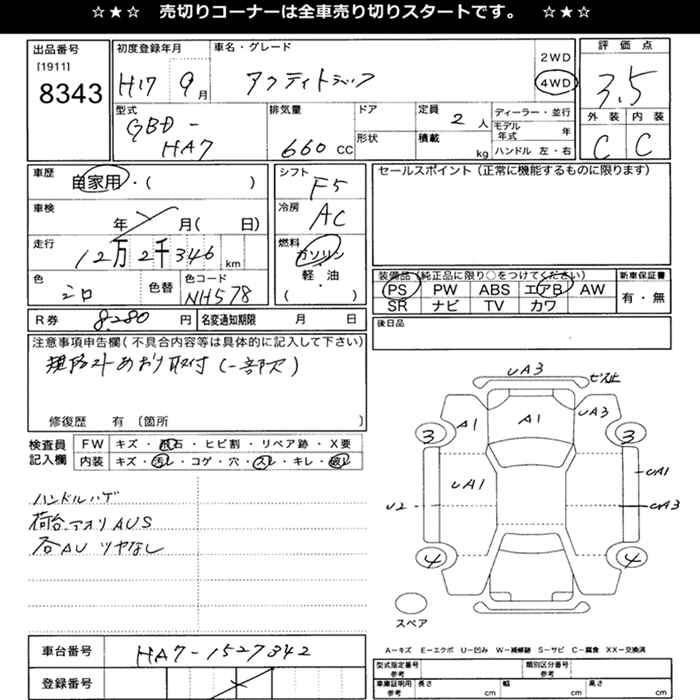 ☆★☆ 売切りコーナーは全車売り切りスタートです。 ☆★☆
出品番号
[1911]
8343
初度登録年月
H17 9月
車名・グレード
アクティトラック
2WD
4WD
評価点
3.5
外装 内装
C C
型式
GBD-
HA7
排気量
660 CC
ドア
形状
定員
2人
積載
kg
ディーラー・並行
モデル年式 年
ハンドル 左・右
車歴
自家用・( )
車検
年 月( 日)
走行
12万2千346 km
色
シロ
色替
色コード
NH578
シフト
F5
冷房
AC
燃料
ガソリン
軽・油
( )
セールスポイント (正常に機能するものに限ります)
装備品(純正品に限り○をつけてください)
PS PW ABS エアB AW
SR ナビ TV カワ
新車保証書
有・無
R券 8,280 円
名変通知期限 月 日
後日品
注意事項申告欄(不具合内容等は具体的に記入して下さい)
あおり取付(一部欠)
修復歴 有 〔箇所
検査員
記入欄
FW キズ・飛石・ヒビ割・リペア跡・X要
内装 キズ・汚レ・コゲ・穴・スレ・キレ・破レ
ハンドルハゲ
荷台アオリAUS
各AU ツヤなし
UA3
ビス止
A1
A1
UA3
3
3
UA1
UA1
U2
UA3
4
4
スペア
車台番号
HA7-1527342
登録番号
A-キズ E-エクボ U-凹み W-補修跡 S-サビ C-腐食 XX-交換済
型式指定番号
参考
類別区分番号
参考
車庫証明用
参考
長さ cm
幅 cm
高さ cm